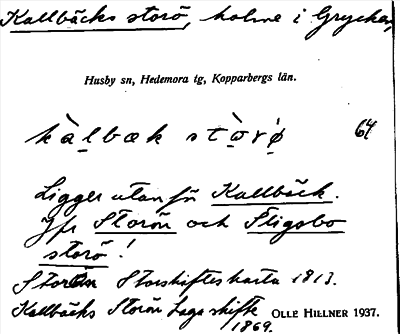 Kallbäcks storö, holme i Grycken,
Husby sn, Hedemora tg, Kopparbergs län.
kàlbæk stòrö́ 64
Ligger utanför Kallbäck.
Jfr Storön och Stigsbo
storö!
Storön Storskifteskarta 1813.
Kallbäcks Storön Laga skifte OLLE HILLNER 1937.
1869.